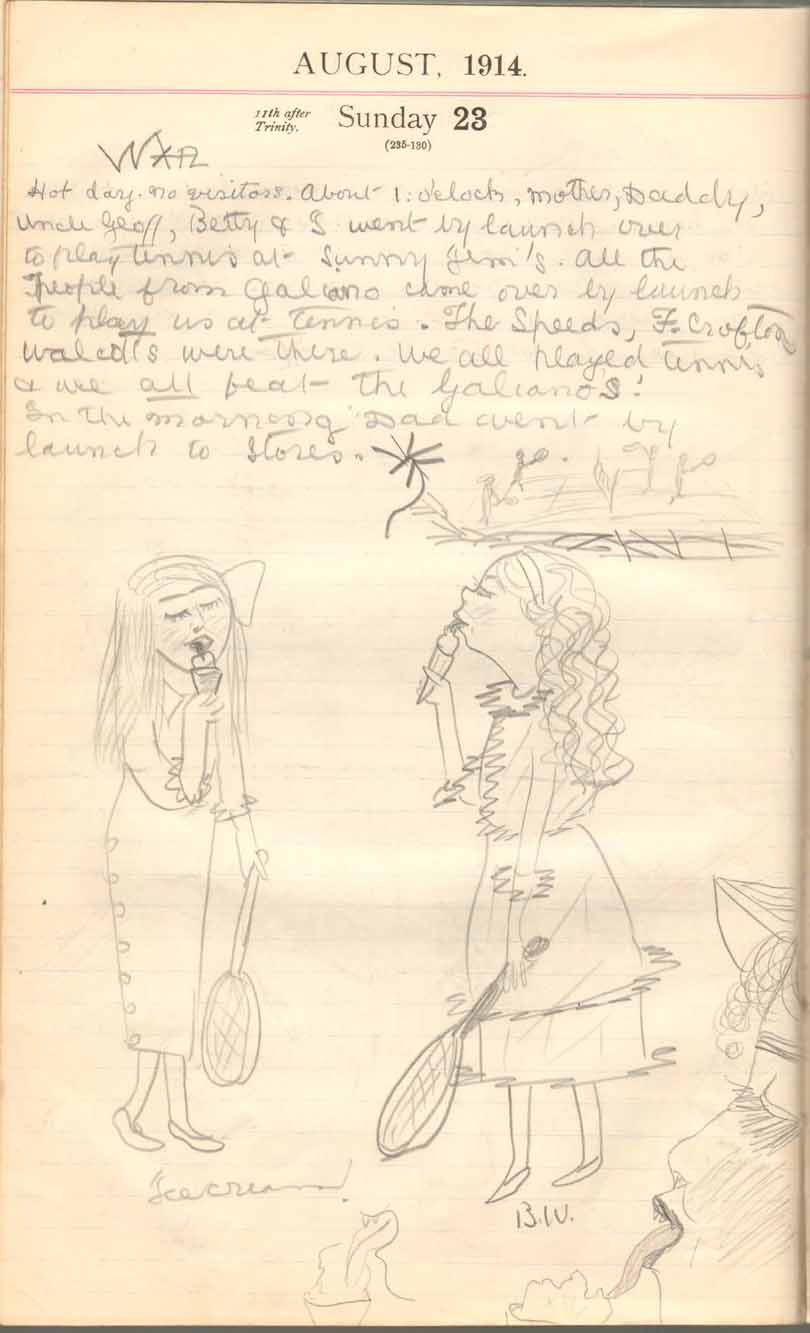 AUGUST, 1914.
11th after
Trinity.
Sunday 23
(235-130)
WAR
Hot day. no visitors. About 1. o'clock, mother, Daddy,
Uncle Geoff, Betty & I went by launch over
to play tennis at Sunny Jim's. All the
People from Galiano came over by launch
to play us at tennis. The Speeds, F. Crofton
were there. We all played tennis
& we all beat the Galianos!
In the morning Dad went by
launch to Stores.
Icecream!
B.W.